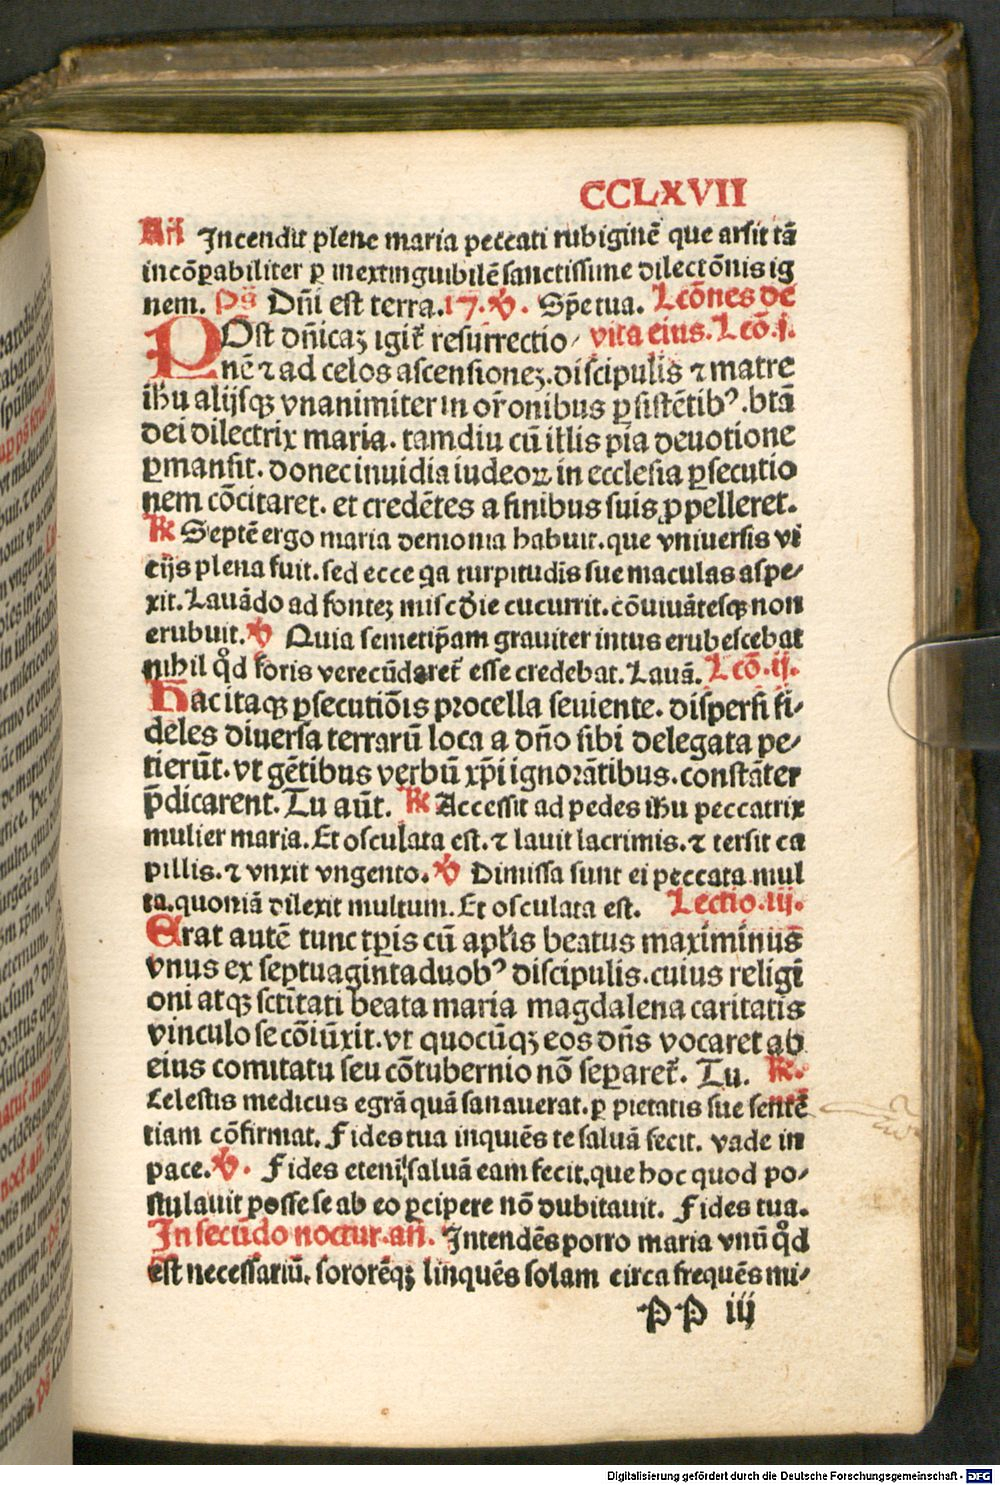 CCLXVII
Añ Incendit plene maria peccati rubiginē que arsit tā
incōꝑabiliter ꝑ inextinguibilē sanctissime dilectōnis ig
nem. pš Dñi est terra.17.℣. Spē tua. Lcōnes de
POst dñicaꝫ igit᷑ resurrectio⸗ vita eius. Lcō.j.
nē ⁊ ad celos ascensioneꝫ.discipulis ⁊ matre
ihu alijsqꝫ vnanimiter in or̄onibus ꝑsistētibꝰ.btā
dei dilectrix maria. tamdiu cū illis pia deuotione
ꝑmansit. donec inuidia iudeoꝝ in ecclesia ꝑsecutio
nem cōcitaret. et credētes a finibus suis ꝓpelleret.
℟ Septē ergo maria demonia habuit.que vniuersis vi
cijs plena fuit. sed ecce qa turpitudīs sue maculas aspe⸗
xit. Lauādo ad fonteꝫ misc̄die cucurrit. cōuiuātesqꝫ non
erubuit. ℣ Quia semetip̄am grauiter intus erubescebat
nihil qd̉ foris verecūdaret᷑ esse credebat. Lauā. Lcō.ij.
Hac itaqꝫ ꝑsecutiōis procella seuiente. dispersi fi⸗
deles diuersa terrarū loca a dño sibi delegata pe⸗
tierūt. vt gētibus verbū xp̄i ignorātibus. constāter
p̄dicarent. Tu aūt. ℟ Accessit ad pedes ihu peccatrix
mulier maria. Et osculata est. ⁊ lauit lacrimis. ⁊ tersit ca
pillis. ⁊ vnxit vngento. ℣ Dimissa sunt ei peccata mul
ta.quoniā dilexit multum. Et osculata est. Lectio.iij.
Erat autē tunc tp̄is cū apl̄is beatus maximinus
vnus ex septuagintaduobꝰ discipulis.cuius religi
oni atqꝫ sctītati beata maria magdalena caritatis
vinculo se cōiūxit. vt quocūqꝫ eos dñs vocaret ab
eius comitatu seu cōtubernio nō separaret᷑. Tu. ℟.
Celestis medicus egrā quā sanauerat. ꝑ pietatis sue sentē
tiam cōfirmat. Fides tua inquiēs te saluā fecit. vade in
pace. ℣. Fides etenī saluā eam fecit.que hoc quod po⸗
stulauit posse se ab eo ꝑcipere nō dubitauit. Fides tua.
In secūdo noctur.añ. Intendēs porro maria vnū qd̉
est necessariū. sororēqꝫ linquēs solam circa frequēs mi⸗
PP iij
Digitalisierung gefördert durch die Deutsche Forschungsgemeinschaft - DFG